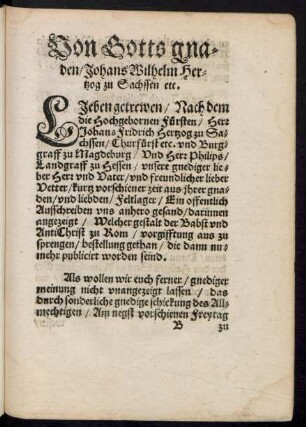 Von Gotts gna-
den/Johans Wilhelm Her-
tzog zu Sachssen etc.
LIeben getrewen / Nach dem
die Hochgebornen Fürsten / Herr
Johans Fridrich Hertzog zu Sa-
chssen/ Churfürst etc. vnd Burg-
graff zu Magdeburg / Vnd Herr Philips/
Landgraff zu Hessen / vnsere gnediger lie-
ber Herr vnd Vater/ vnd freundlicher lieber
Vetter/kurtz vorschiener zeit aus jhrer gna-
den/vnd liebden/ Feltlager / Ein offentlich
Ausschreiben vns anhero gesand/darinnen
angezeigt / Welcher gestalt der Babst vnd
AntiChrist zu Rom / vorgifftung aus zu
sprengen/bestellung gethan/ die dann nu-
mehr publicirt worden seind.
Als wollen wir euch ferner/ gnediger
meinung nicht vnangezeigt lassen / das
durch sonderliche gnedige schickung des All-
mechtigen / Am negst vorschienen Freytag
B zu